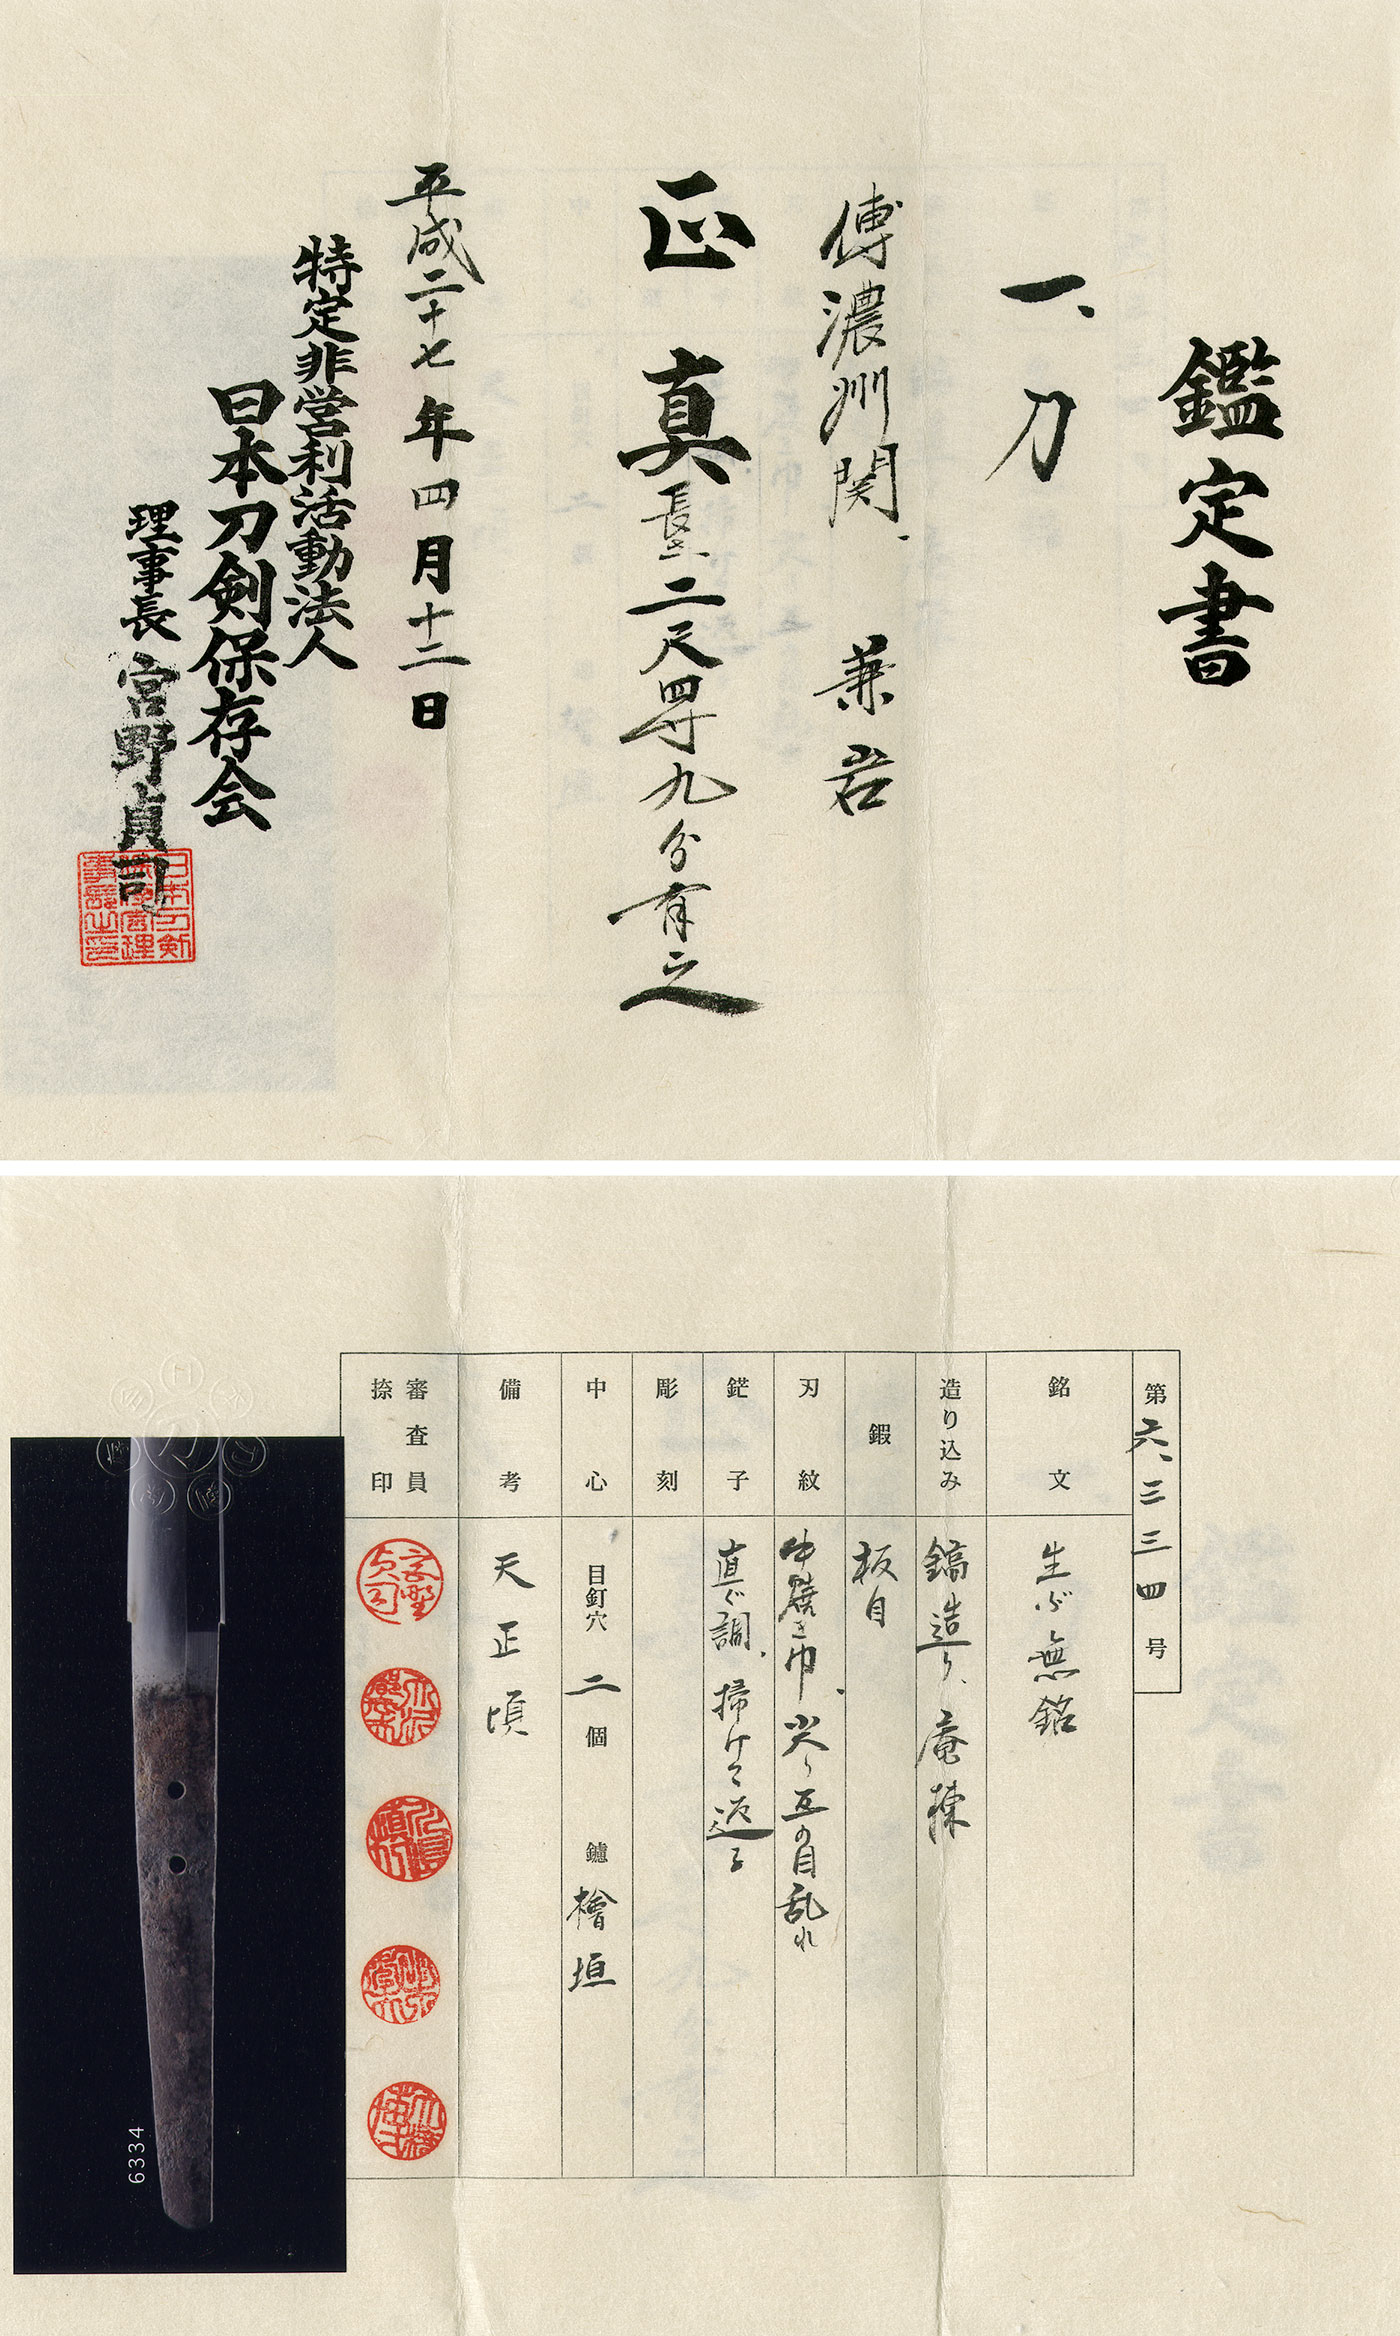 鑑定書
一、刀
傳濃州関 兼岩
正真 長サ 二尺四寸九分有之
平成二十七年四月十二日
特定非営利活動法人
日本刀剣保存会
理事長 宮野貞司
第 六、三三四 号
銘文 生ぶ無銘
造り込み 鎬造り、庵棟
鍛 板目
刃紋 中焼き巾、尖り互の目乱れ
鋩子 直ぐ調、掃けて返る
彫刻
中心 目釘穴 二 個 鑢 檜垣
備考 天正頃
審査員
捺印
6334